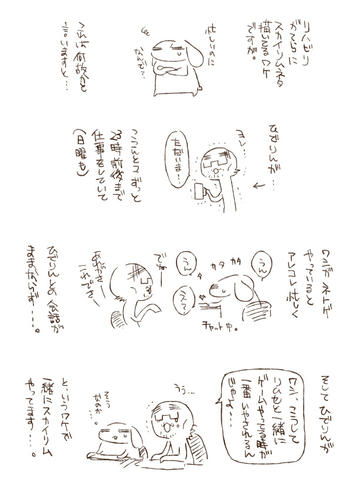 リハビリ
がてらに
スカイリムネタ
描いてるワケ
ですが。
忙しいのに
なんで?
つぶれ何故と
言いますと…
ひでりんが…
ヨレ…
ただいま…
ここんとこずっと
23時前後まで
仕事をしていて
(日曜も)
ワシがネトゲ
やっていると
アレコレ忙しく
カタカタ
うん
うん
チャット中。
でね
あれがさ
これでさ
ひでりんとの会話が
ままならず…。
そしてひでりんが
ワシ、こうして
りむセと一緒に
ゲームやってる時が
一番いやされるん
じゃよ…
うう…
そう
なのか…
と、いうワケで
一緒にスカイリム
やってます…。